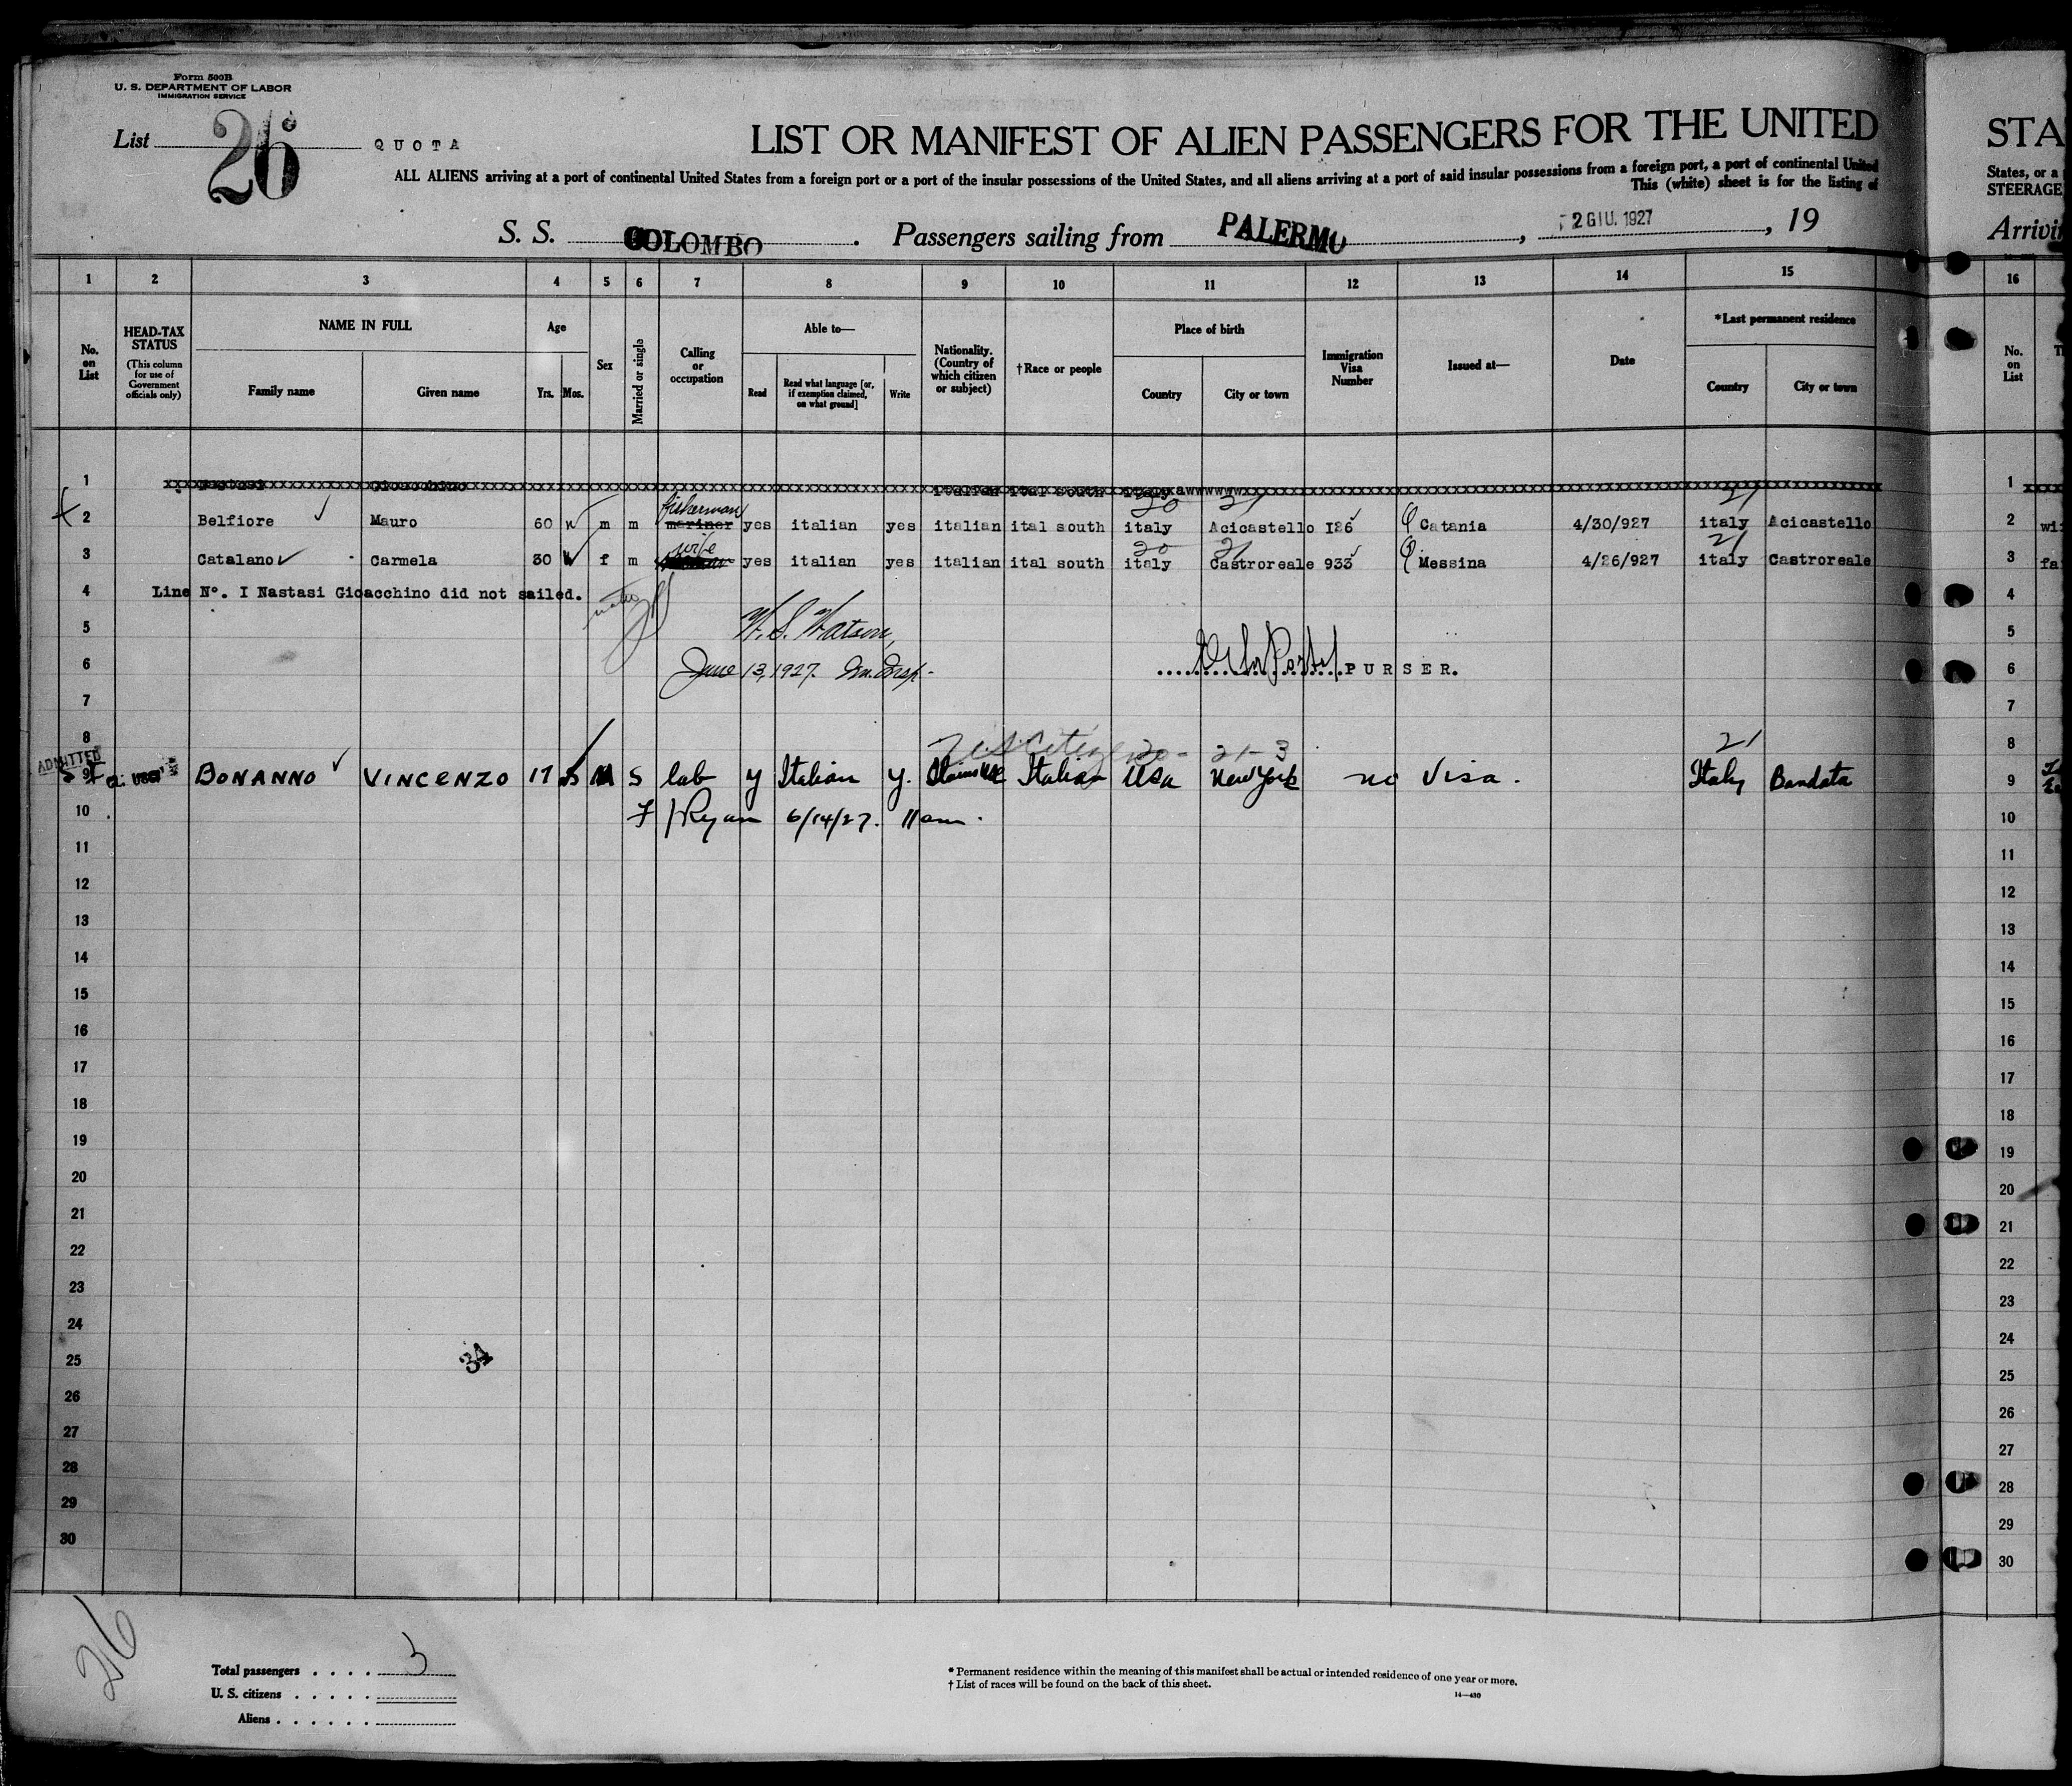 Form 500B
U. S. DEPARTMENT OF LABOR
IMMIGRATION SERVICE
List 26 QUOTA
LIST OR MANIFEST OF ALIEN PASSENGERS FOR THE UNITED
ALL ALIENS arriving at a port of continental United States from a foreign port or a port of the insular possessions of the United States, and all aliens arriving at a port of said insular possessions from a foreign port, a port of continental United
This (white) sheet is for the listing of
S. S. COLOMBO . Passengers sailing from PALERMO , 2 GIU. 1927 , 19
STA
States, or a
STEERAGE
Arrivi
1 2 3 4 5 6 7 8 9 10 11 12 13 14 15 16
No. on List
HEAD-TAX STATUS
(This column for use of Government officials only)
NAME IN FULL
Family name Given name
Age
Yrs. Mos.
Sex
Married or single
Calling or occupation
Able to—
Read
Read what language [or, if exemption claimed, on what ground]
Write
Nationality. (Country of which citizen or subject)
†Race or people
Place of birth
Country City or town
Immigration Visa Number
Issued at—
Date
*Last permanent residence
Country City or town
No. on List
1 Nastasi Gioacchino italian ital south italy 1
20 21 21
fisherman
2 Belfiore ✓ Mauro 60 m m mariner yes italian yes italian ital south italy Acicastello I86 Catania 4/30/927 italy Acicastello 2
wife 20 21 21
3 Catalano ✓ Carmela 30 f m yes italian yes italian ital south italy Castroreale 933 Messina 4/26/927 italy Castroreale 3 fa
4 Line N°. I Nastasi Gioacchino did not sailed. 4
5 W. S. Watson, 5
6 June 13, 1927. Im. Insp. PURSER. 6
7 7
8 U.S. Citizen 20- 21-3 21 8
ADMITTED
9 BONANNO ✓ VINCENZO 17 M S lab y Italian y. Claims USC Italian USA New York no Visa. Italy Bandata 9
10 F J Ryan 6/14/27. 11 am. 10
11 11
12 12
13 13
14 14
15 15
16 16
17 17
18 18
19 19
20 20
21 21
22 22
23 23
24 24
34
25 25
26 26
27 27
28 28
29 29
30 30
26
Total passengers . . . . 3
U. S. citizens . . . . .
Aliens . . . . . .
* Permanent residence within the meaning of this manifest shall be actual or intended residence of one year or more.
† List of races will be found on the back of this sheet.
14—430